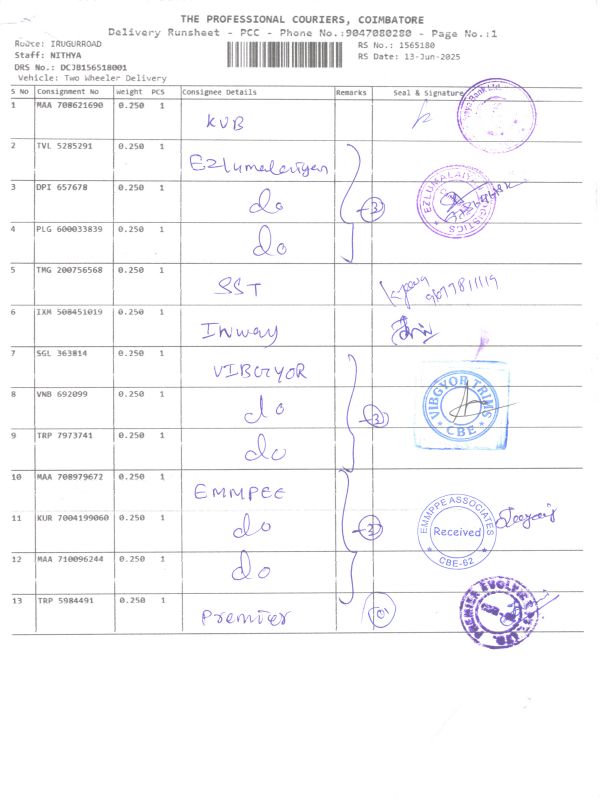 THE PROFESSIONAL COURIERS, COIMBATORE
Delivery Runsheet - PCC - Phone No.:9047080280 - Page No.:1
Route: IRUGURROAD
RS No.: 1565180
Staff: NITHYA
RS Date: 13-Jun-2025
DRS No.: DCJB156518001
Vehicle: Two Wheeler Delivery
S No Consignment No Weight PCS Consignee Details Remarks Seal & Signature
1 MAA 708621690 0.250 1 KVB
2 TVL 5285291 0.250 1 Ezlumalaiyan
3 DPI 657678 0.250 1 do 3 EZLUMALAIYAN LOGISTICS
4 PLG 600033839 0.250 1 do
5 TMG 200756568 0.250 1 SST 9677811119
6 IXM 508451019 0.250 1 Inway
7 SGL 363814 0.250 1 VIBGYOR
8 VNB 692099 0.250 1 do 3 VIBGYOR TRIMS CBE
9 TRP 7973741 0.250 1 do
10 MAA 708979672 0.250 1 EMMPEE
11 KUR 7004199060 0.250 1 do EMMPPE ASSOCIATES Received CBE-62
12 MAA 710096244 0.250 1 do
13 TRP 5984491 0.250 1 Premier 01 PREMIER EVOLVICS PVT. LTD.